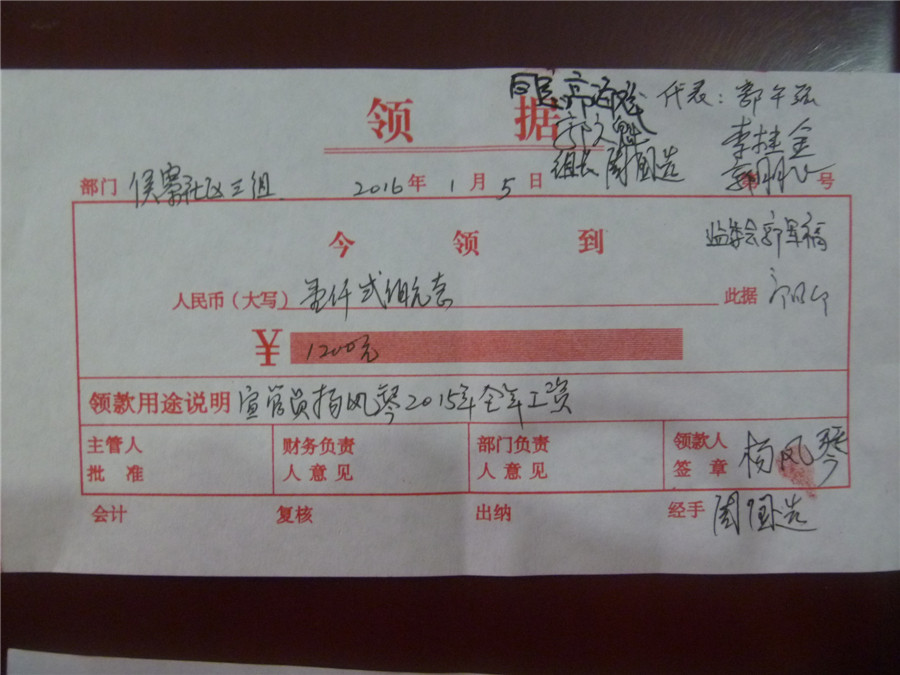 领 据
同意 代表：郭午强
李桂金
组长 周国选
部门 侯寨社区三组 2016年 1月 5日 号
今 领 到 监委会
人民币（大写） 壹仟贰佰元整 此据
¥ 1200元
领款用途说明 宣管员杨凤琴2015年全年工资
主管人 财务负责 部门负责 领款人 杨凤琴
批 准 人意见 人意见 签 章
会计 复核 出纳 经手 周国选